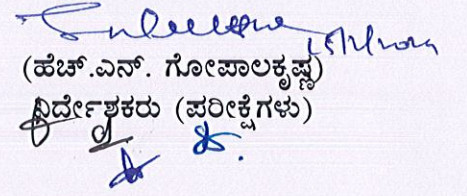 (ಹೆಚ್.ಎನ್. ಗೋಪಾಲಕೃಷ್ಣ)
ನಿರ್ದೇಶಕರು (ಪರೀಕ್ಷೆಗಳು)